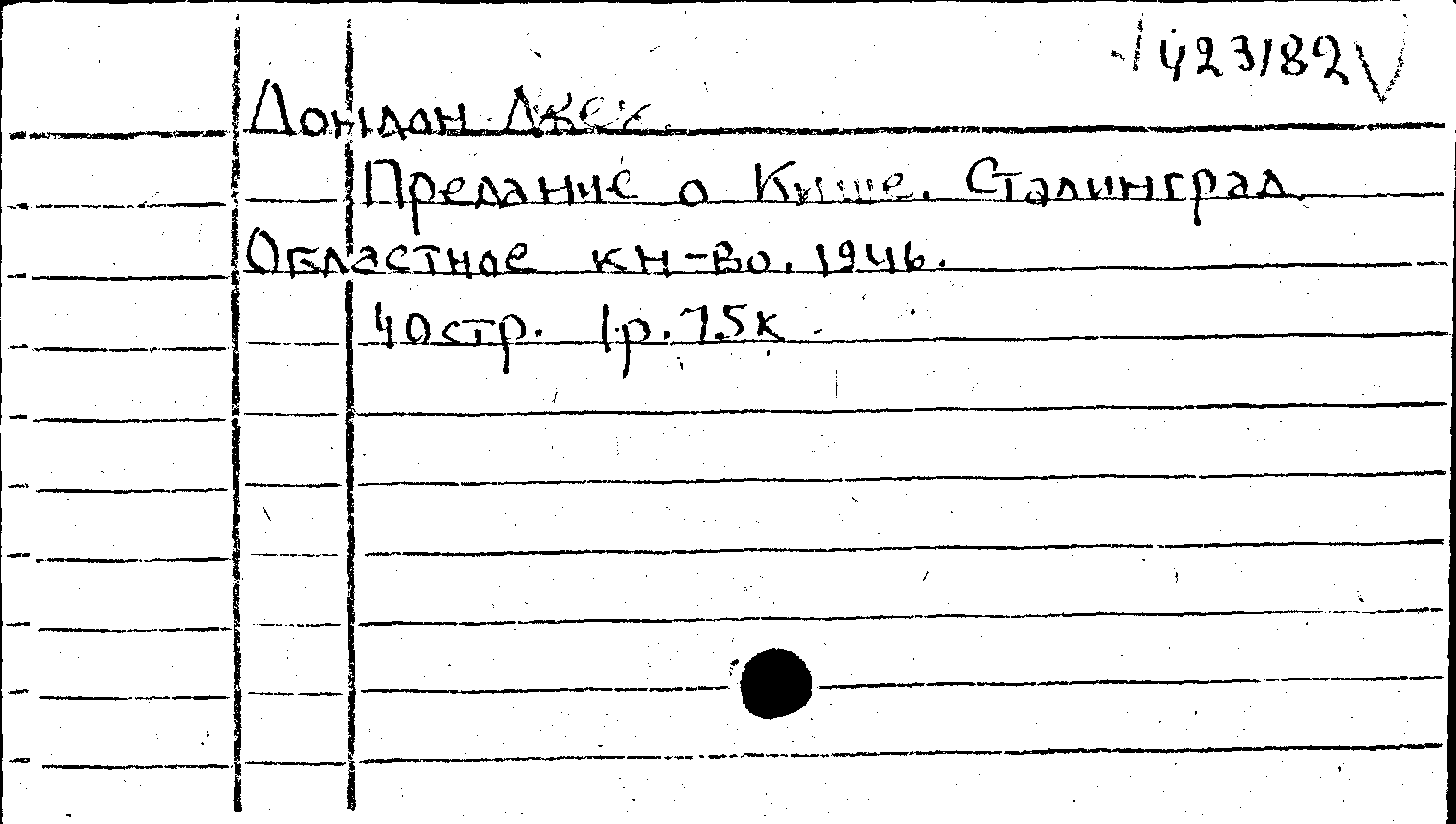 423182
Лондон Джек.
Предание о Кише. Сталинград
Областное кн-во. 1946.
40стр. 1р. 75к.